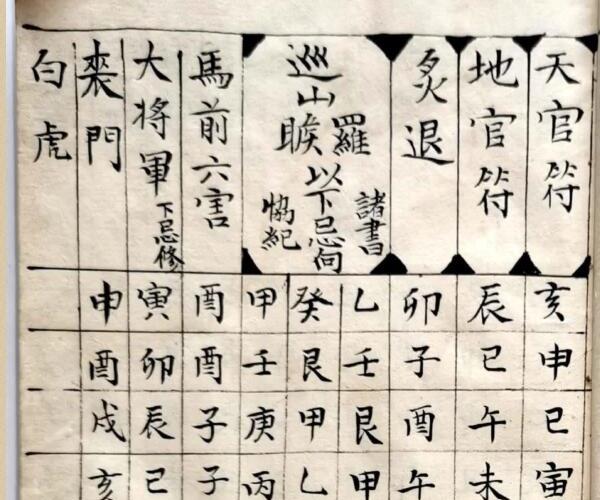 天官符
亥申巳寅
地官符
辰巳午未
炙退
卯子酉午
巡山羅睺以下忌向
諸書
協紀
乙壬艮甲
癸艮甲乙
甲壬庚丙
馬前六害
酉酉子子
大將軍
下忌修
寅卯辰巳
喪門
申酉戌亥
白虎